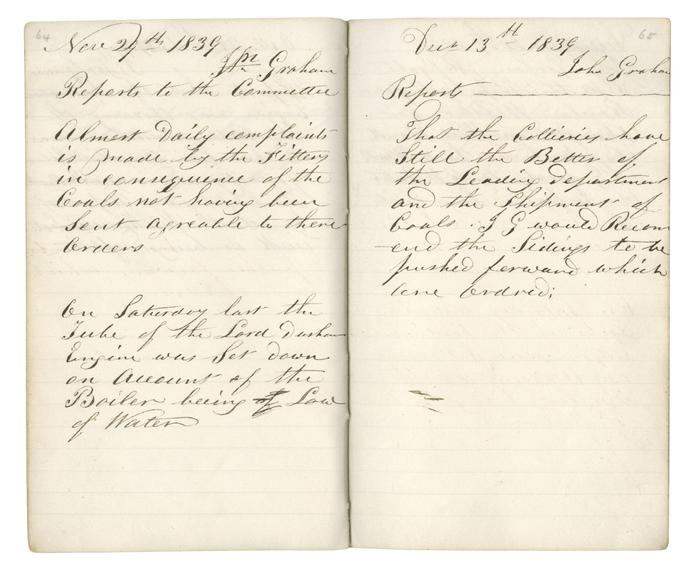 64
Nov 29th 1839
Jn Graham
Reports to the Committee
Almost Daily complaints
is made by the Fitters
in consequence of the
Coals not having been
Sent agreable to there
Orders
On Saturday last the
Tube of the Lord Durham
Engine was Set down
on Account of the
Boiler being of Low
of Water
65
Decr 13th 1839
John Graham
Reports
That the Collieries have
Still the Better of
the Leading department
and the Shipment of
Coals. J G would Recom
end the Sidings to be
pushed forward which
are Ordred;